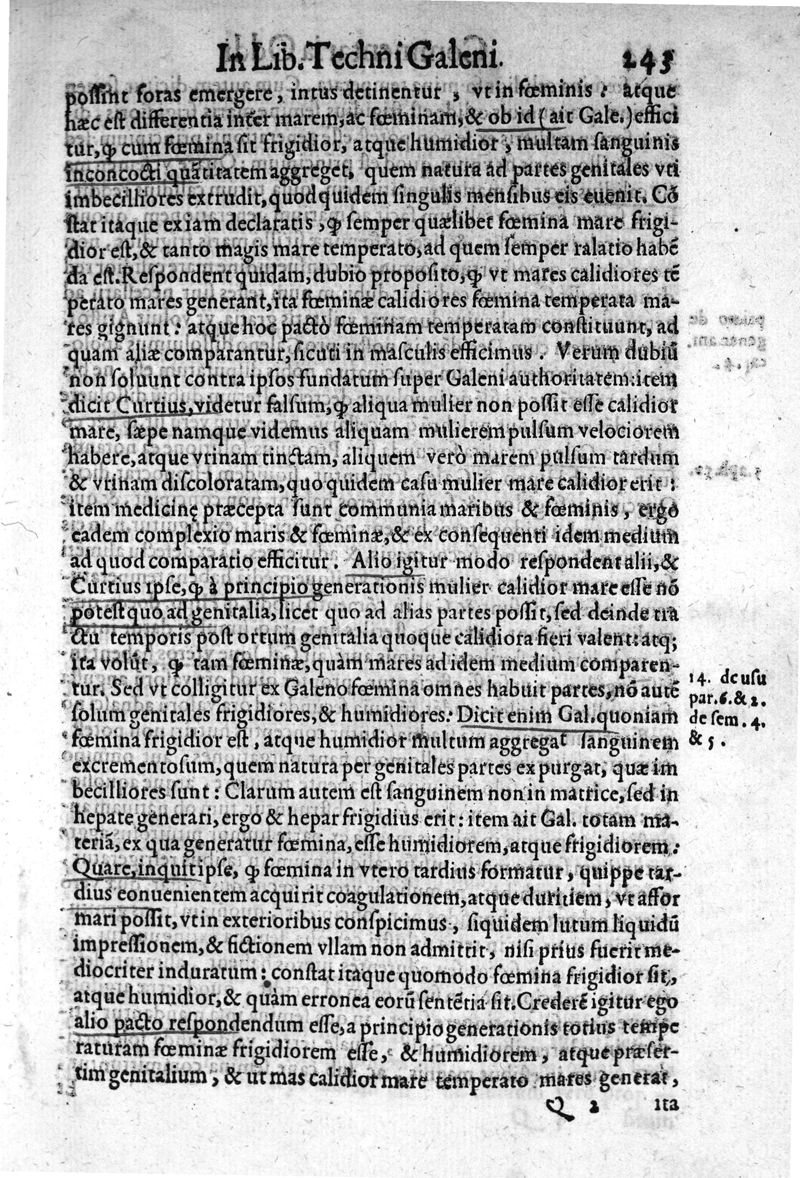 In Lib. Techni Galeni. 243
possint foras emergere, intus detinentur, vt in fœminis: atque
hæc est differentia inter marem, ac fœminam, & ob id (ait Gale.) effici
tur, ꝙ cum fœmina sit frigidior, atque humidior, multam sanguinis
inconcocti quãtitatem aggreget, quem natura ad partes genitales vti
imbecilliores extrudit, quod quidem singulis mensibus eis euenit. Cõ
stat itaque ex iam declaratis, ꝙ semper quælibet fœmina mare frigi-
dior est, & tanto magis mare temperato, ad quem semper ralatio habẽ
da est. Respondent quidam, dubio proposito, ꝙ vt mares calidiores tẽ
perato mares generant, ita fœminæ calidiores fœmina temperata ma-
res gignunt: atque hoc pactò fœminam temperatam constituunt, ad
quam aliæ comparantur, sicuti in masculis efficimus. Verum dubiũ
non soluunt contra ipsos fundatum super Galeni authoritatem: item
dicit Curtius, videtur falsum, ꝙ aliqua mulier non possit esse calidior
mare, sæpe namque videmus aliquam mulierem pulsum velociorem
habere, atque vrinam tinctam, aliquem verò marem pulsum tardum
& vrinam discoloratam, quo quidem casu mulier mare calidior erit:
item medicinę præcepta sunt communia maribus & fœminis, ergo
eadem complexio maris & fœminæ, & ex consequenti idem medium
ad quod comparatio efficitur. Alio igitur modo respondent alii, &
Curtius ipse, ꝙ à principio generationis mulier calidior mare esse nõ
potest quo ad genitalia, licet quo ad alias partes possit, sed deinde tra
ctu temporis post ortum genitalia quoque calidiora fieri valent: atq;
ita volũt, ꝙ tam fœminæ, quàm mares ad idem medium comparen-
tur. Sed vt colligitur ex Galeno fœmina omnes habuit partes, nõ autẽ
solum genitales frigidiores, & humidiores: Dicit enim Gal. quoniam
fœmina frigidior est, atque humidior multum aggregat sanguinem
excrementosum, quem natura per genitales partes expurgat, quæ im
becilliores sunt: Clarum autem est sanguinem non in matrice, sed in
hepate generari, ergo & hepar frigidius erit: item ait Gal. totam ma-
teriã, ex qua generatur fœmina, esse humidiorem, atque frigidiorem:
Quare, inquit ipse, ꝙ fœmina in vtero tardius formatur, quippe tar-
dius conuenientem acquirit coagulationem, atque duritiem, vt affor
mari possit, vt in exterioribus conspicimus, siquidem lutum liquidũ
impressionem, & fictionem vllam non admittit, nisi prius fuerit me-
diocriter induratum: constat itaque quomodo fœmina frigidior sit,
atque humidior, & quàm erronea eorũ sentẽtia sit. Crederẽ igitur ego
alio pacto respondendum esse, a principio generationis totius tempe
raturam fœminæ frigidiorem esse, & humidiorem, atque præser-
tim genitalium, & ut mas calidior mare temperato mares generat,
Q 2 ita
14. de usu
par. 6. & 2.
de sem. 4.
& 5.